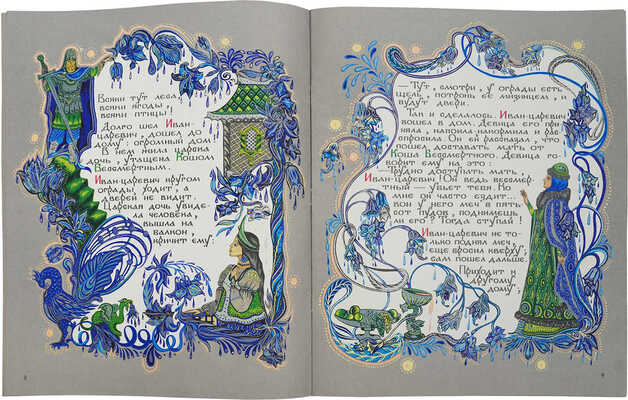 Всяки тут леса,
всяки ягоды,
всяки птицы!
Долго шел Иван-
царевич, дошел до
дому: огромный дом!
В нем жила царска
дочь, утащена Кошом
Бессмертным.
Иван-царевич кругом
ограды ходит, а
дверей не видит.
Царская дочь увиде-
ла человека,
вышла на
балкон,
кричит ему:
8
— Тут, смотри, у ограды есть
щель, потронь ее мизинцем, и
будут двери.
Так и сделалось. Иван-царевич
вошел в дом. Девица его при-
няла, напоила-накормила и рас-
спросила. Он ей рассказал, что
пошел доставать мать от
Коша Бессмертного. Девица го-
ворит ему на это:
— Трудно доступать мать,
Иван-царевич! Он ведь бессмер-
тный — убьет тебя. Ко
мне он часто ездит...
вон у него меч в пять-
сот пудов, поднимешь
ли его? Тогда ступай!
Иван-царевич не то-
лько поднял меч,
еще бросил кверху;
сам пошел дальше.
Приходит к
другому
дому;
9